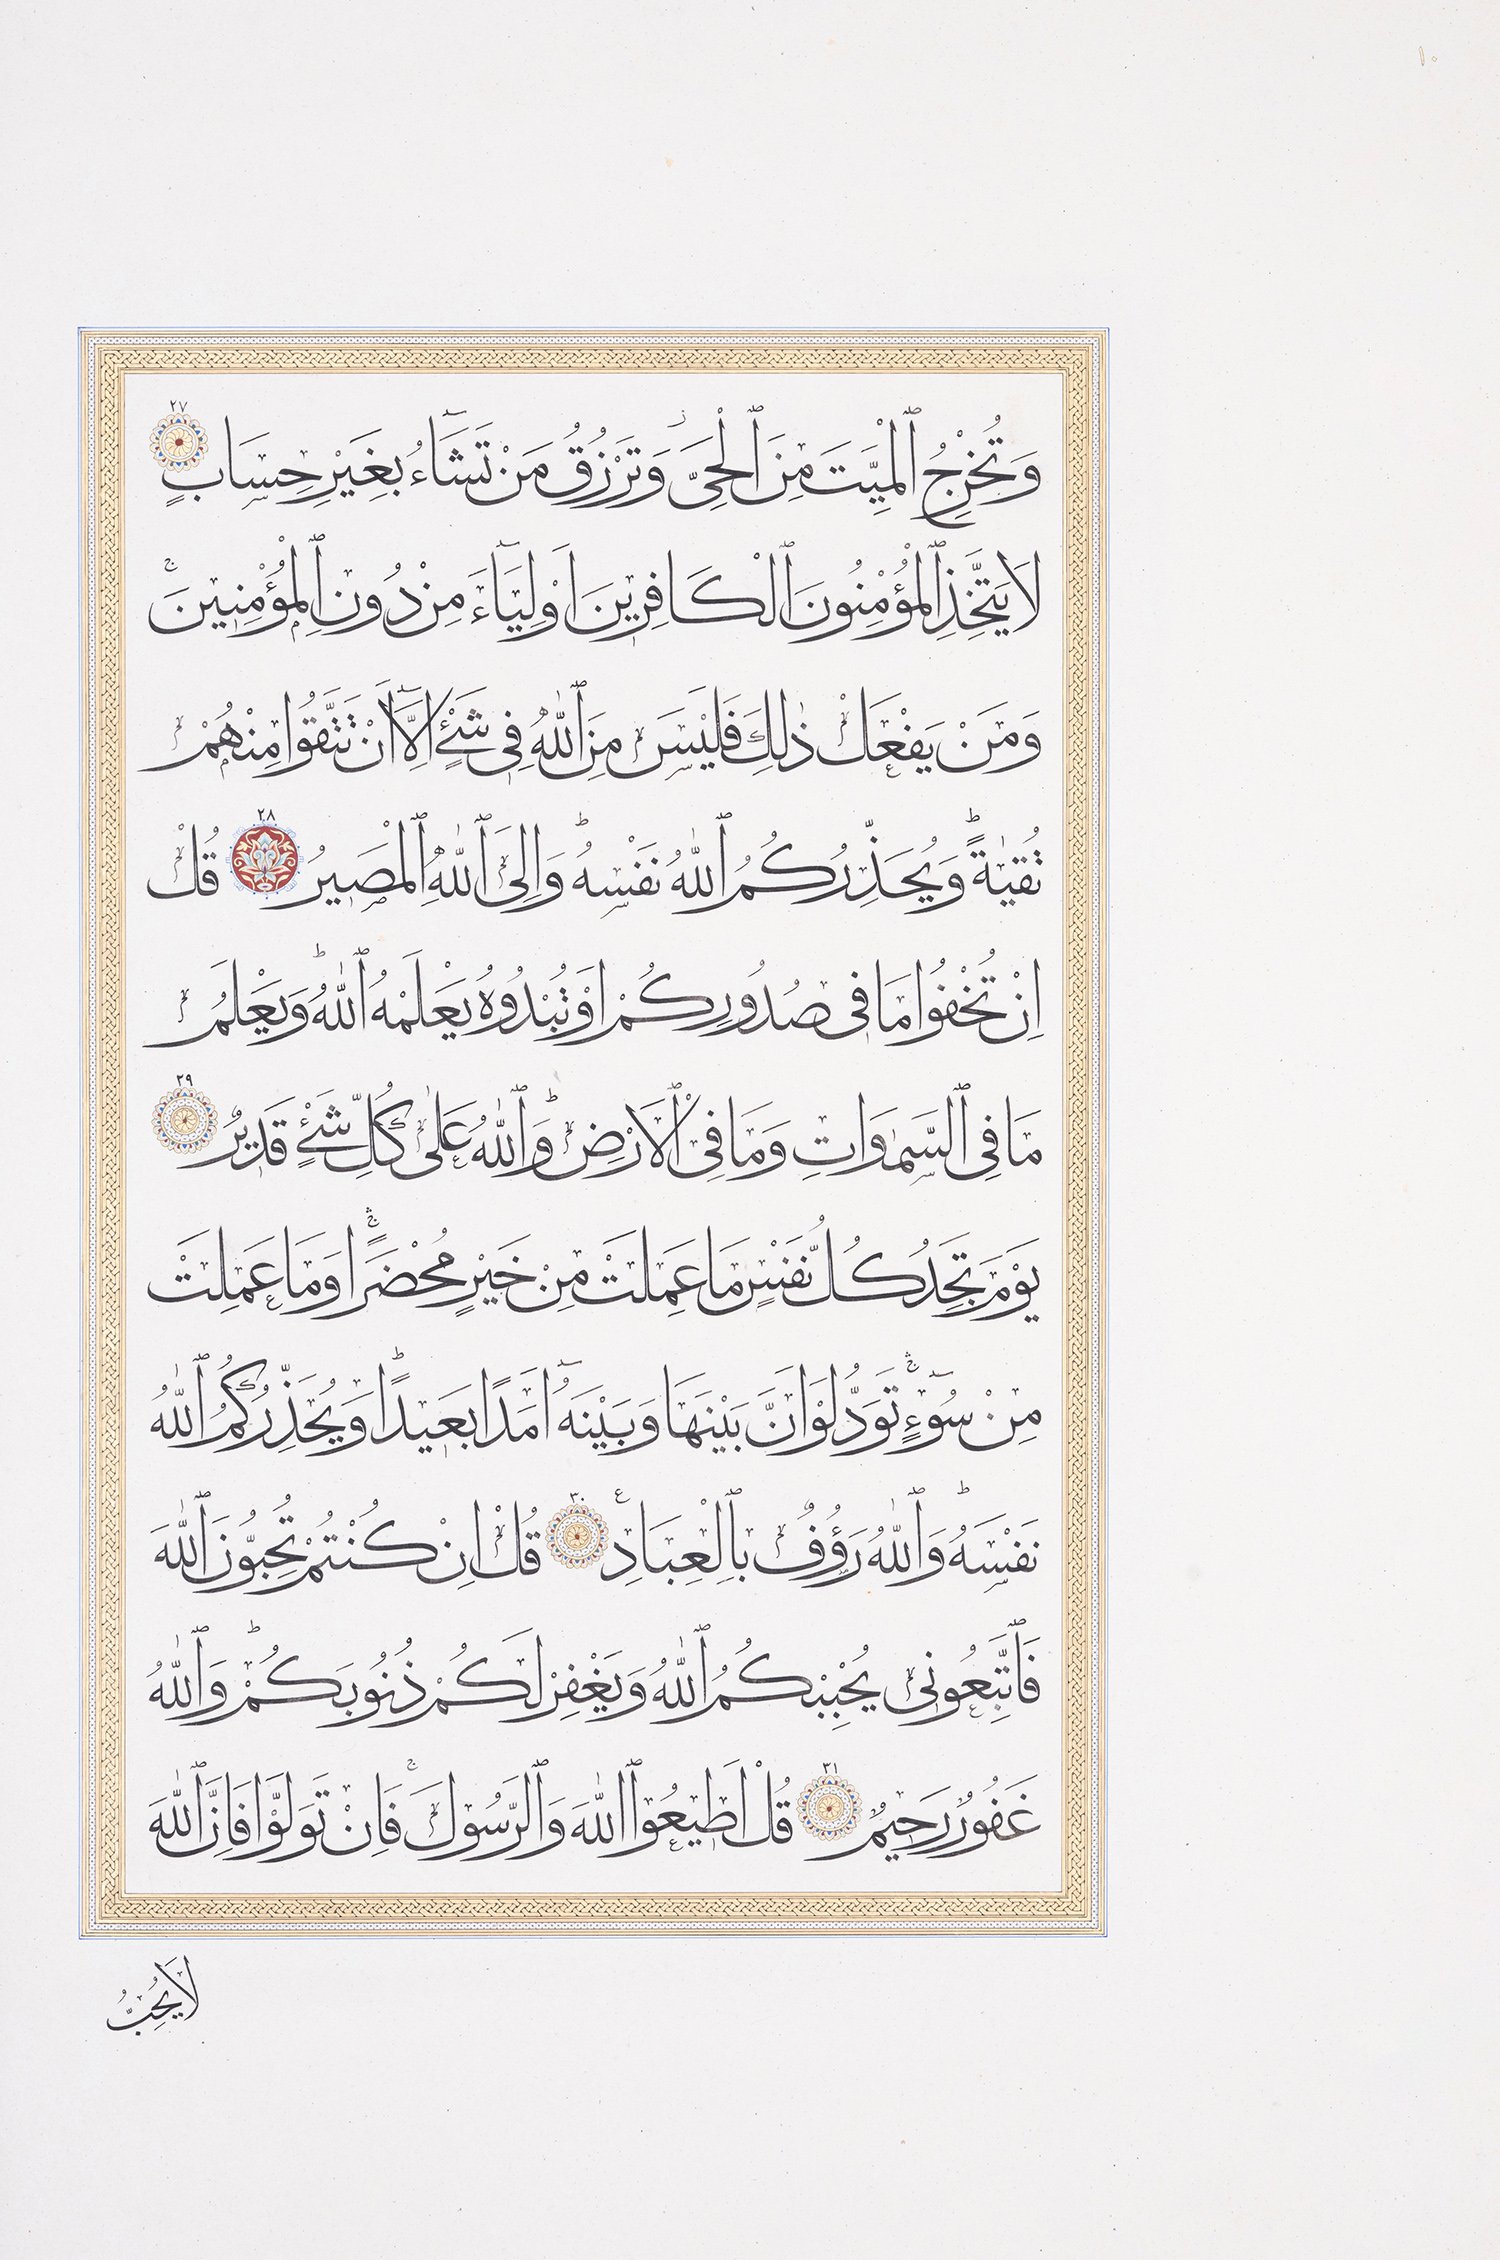 ١٠
وَتُخْرِجُ ٱلْمَيِّتَ مِنَ ٱلْحَيِّ ۘ وَتَرْزُقُ مَنْ تَشَٓاءُ بِغَيْرِ حِسَابٍ ٢٧
لَا يَتَّخِذِ ٱلْمُؤْمِنُونَ ٱلْكَافِرِينَ اَوْلِيَٓاءَ مِنْ دُونِ ٱلْمُؤْمِنِينَ ۚ
وَمَنْ يَفْعَلْ ذٰلِكَ فَلَيْسَ مِنَ ٱللّٰهِ فِى شَىْءٍ اِلَّٓا اَنْ تَتَّقُوا مِنْهُمْ
تُقٰيةً ؕ وَيُحَذِّرُكُمُ ٱللّٰهُ نَفْسَهُ ؕ وَاِلَى ٱللّٰهِ ٱلْمَصِيرُ ٢٨ قُلْ
اِنْ تُخْفُوا مَا فِى صُدُورِكُمْ اَوْ تُبْدُوهُ يَعْلَمْهُ ٱللّٰهُ ؕ وَيَعْلَمُ
مَا فِى ٱلسَّمٰوَاتِ وَمَا فِى ٱلْاَرْضِ ؕ وَٱللّٰهُ عَلٰى كُلِّ شَىْءٍ قَدِيرٌ ٢٩
يَوْمَ تَجِدُ كُلُّ نَفْسٍ مَا عَمِلَتْ مِنْ خَيْرٍ مُحْضَرًا ۛ وَمَا عَمِلَتْ
مِنْ سُٓوءٍ ۛ تَوَدُّ لَوْ اَنَّ بَيْنَهَا وَبَيْنَهُٓ اَمَدًا بَعِيدًا ؕ وَيُحَذِّرُكُمُ ٱللّٰهُ
نَفْسَهُ ؕ وَٱللّٰهُ رَؤُفٌ بِٱلْعِبَادِ ع ٣٠ قُلْ اِنْ كُنْتُمْ تُحِبُّونَ ٱللّٰهَ
فَٱتَّبِعُونِى يُحْبِبْكُمُ ٱللّٰهُ وَيَغْفِرْ لَكُمْ ذُنُوبَكُمْ ؕ وَٱللّٰهُ
غَفُورٌ رَحِيمٌ ٣١ قُلْ اَطِيعُوا ٱللّٰهَ وَٱلرَّسُولَ ۚ فَاِنْ تَوَلَّوْا فَاِنَّ ٱللّٰهَ
لَا يُحِبُّ